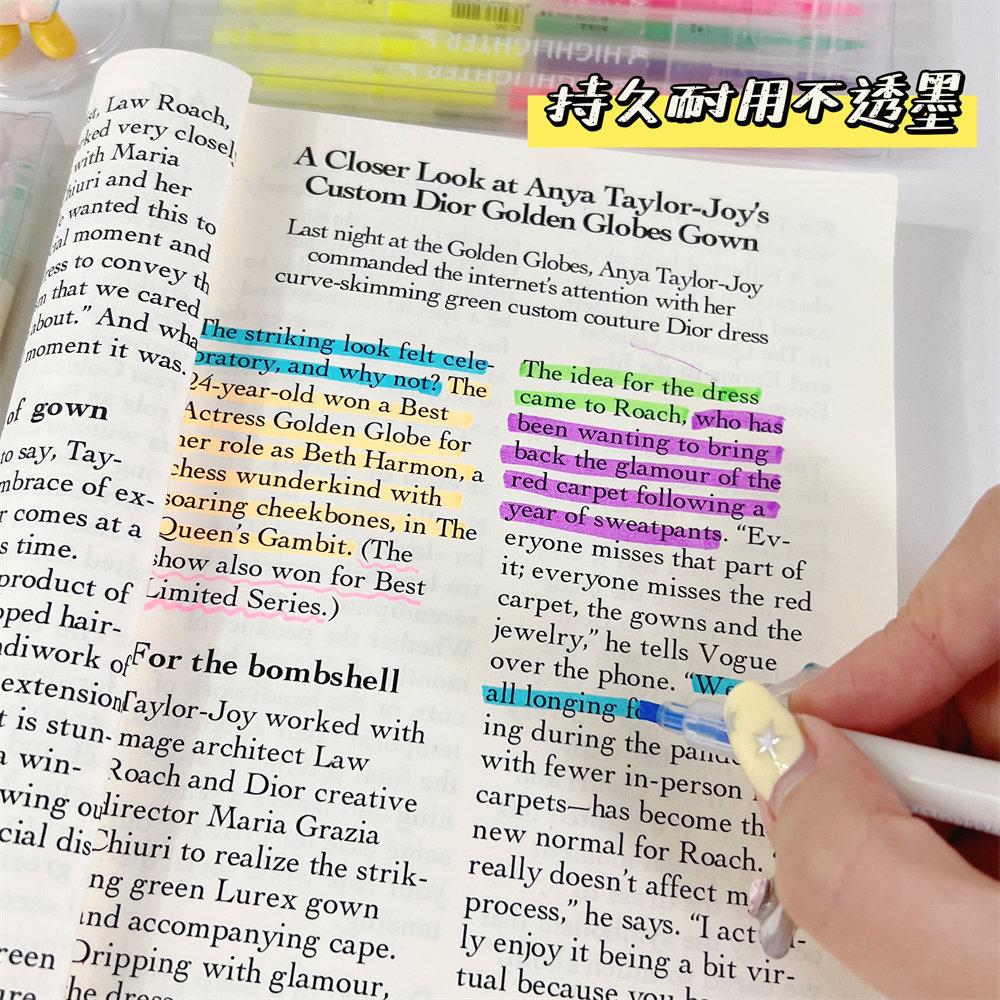 HIGHLIGHTER
HIGHLIGHTER
持久耐用不透墨
Law Roach,
very closely
with Maria
and her
wanted this to
moment and
to convey
that we cared
about." And
moment it was.
of gown
to say, Tay-
of ex-
comes at a
s time.
product of
hair-
of
extension
t is stun-
a win-
cial dis-
A Closer Look at Anya Taylor-Joy's
Custom Dior Golden Globes Gown
Last night at the Golden Globes, Anya Taylor-Joy
commanded the internet's attention with her
curve-skimming green custom couture Dior dress
The striking look felt cele-
bratory, and why not? The
24-year-old won a Best
Actress Golden Globe for
her role as Beth Harmon, a
chess wunderkind with
soaring cheekbones, in The
Queen's Gambit. (The
show also won for Best
Limited Series.)
For the bombshell
Taylor-Joy worked with
image architect Law
Roach and Dior creative
director Maria Grazia
Chiuri to realize the strik-
ing green Lurex gown
and accompanying cape.
Dripping with glamour,
the dress
The idea for the dress
came to Roach, who has
been wanting to bring
back the glamour of the
red carpet following a
year of sweatpants. "Ev-
eryone misses that part of
it; everyone misses the red
carpet, the gowns and the
jewelry," he tells Vogue
over the phone. "We
all longing
ing during the
with fewer in-person
carpets—has become
new normal for Roach.
really doesn't affect
process," he says. "I
ly enjoy it being a bit vir-
tual because you